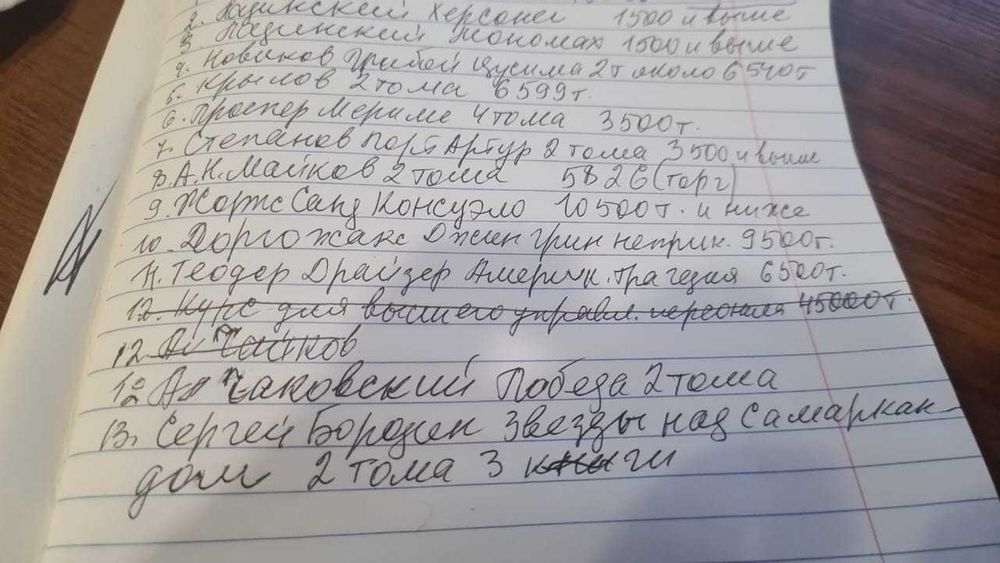 2. Ладинский Херсонес 1500 и выше
3. Ладинский Мономах 1500 и выше
4. Новиков Прибой Цусима 2т около 6540т
5. Крылов 2 тома 6599т.
6. Проспер Мериме 4 тома 3500т.
7. Степанов Порт Артур 2 тома 3500 и выше
8. А.Н. Майков 2 тома 5826 (торг)
9. Жорж Санд Консуэло 10500т. и ниже
10. Доргожакс Джин Грин неприк. 9500т.
11. Теодер Драйзер Америк. трагедия 6500т.
12. Курс для высшего управл. персонала 45000т.
12. Ал Чайков
12 Ал Чаковский Победа 2 тома
13. Сергей Бородин Звезды над Самаркан-
дом 2 тома 3 книги